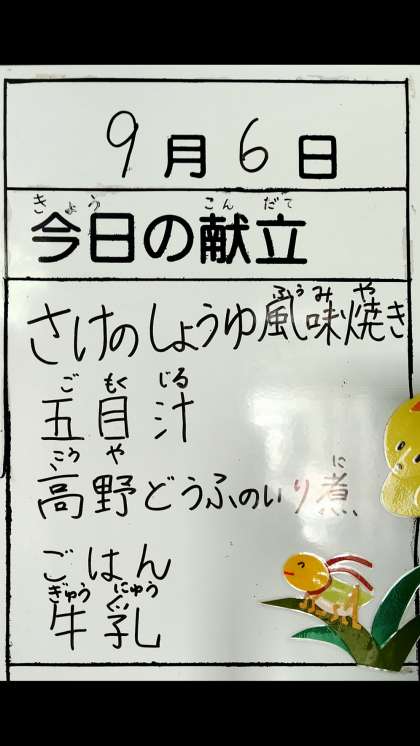 9月6日
きょう こんだて
今日の献立
ふうみ や
さけのしょうゆ風味焼き
ご もく じる
五目汁
こう や に
高野どうふのいり煮
ごはん
ぎゅう にゅう
牛乳